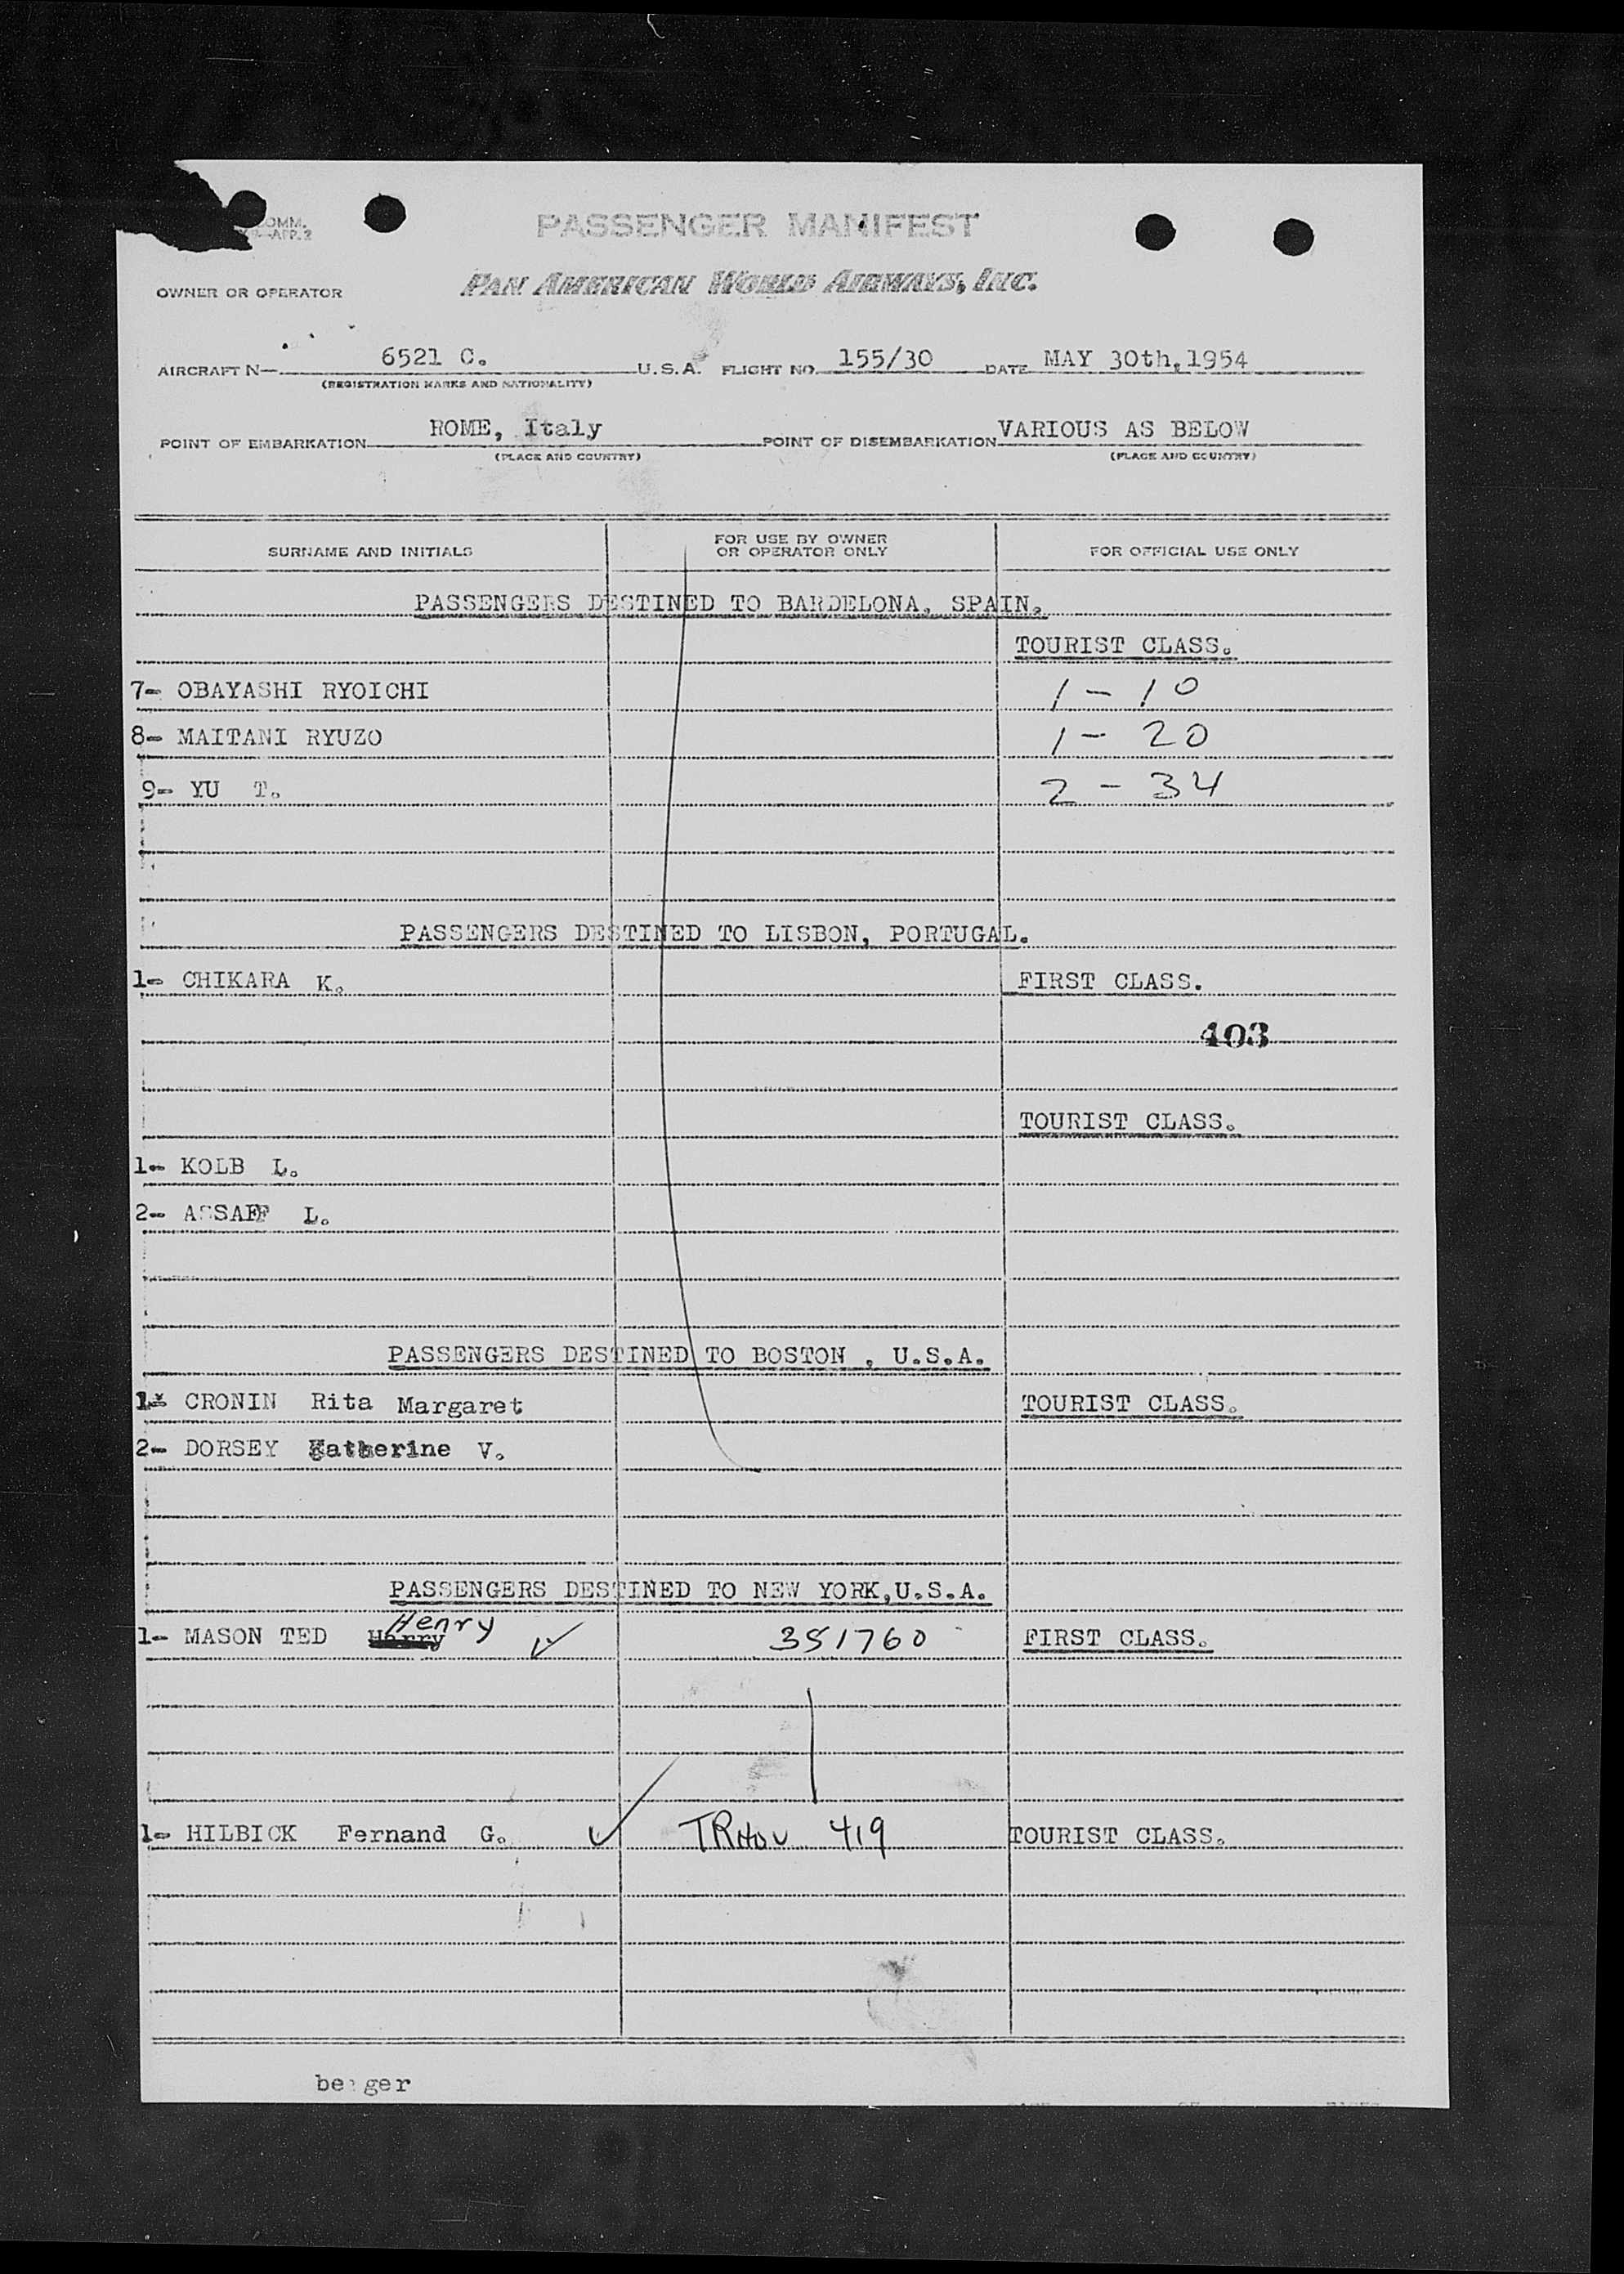 COMM.
APP. 2
PASSENGER MANIFEST
OWNER OR OPERATOR PAN AMERICAN WORLD AIRWAYS, INC.
AIRCRAFT N— 6521 C. U.S.A. FLIGHT NO. 155/30 DATE MAY 30th, 1954
(REGISTRATION MARKS AND NATIONALITY)
POINT OF EMBARKATION ROME, Italy POINT OF DISEMBARKATION VARIOUS AS BELOW
(PLACE AND COUNTRY) (PLACE AND COUNTRY)
SURNAME AND INITIALS FOR USE BY OWNER OR OPERATOR ONLY FOR OFFICIAL USE ONLY
PASSENGERS DESTINED TO BARDELONA, SPAIN.
TOURIST CLASS.
7- OBAYASHI RYOICHI 1 - 10
8- MAITANI RYUZO 1 - 20
9- YU T. 2 - 34
PASSENGERS DESTINED TO LISBON, PORTUGAL.
1- CHIKARA K. FIRST CLASS.
403
TOURIST CLASS.
1- KOLB L.
2- ASSAFF L.
PASSENGERS DESTINED TO BOSTON , U.S.A.
1- CRONIN Rita Margaret TOURIST CLASS.
2- DORSEY Katherine V.
PASSENGERS DESTINED TO NEW YORK,U.S.A.
Henry
1- MASON TED Harry 351760 FIRST CLASS.
1- HILBICK Fernand G. 419 TOURIST CLASS.